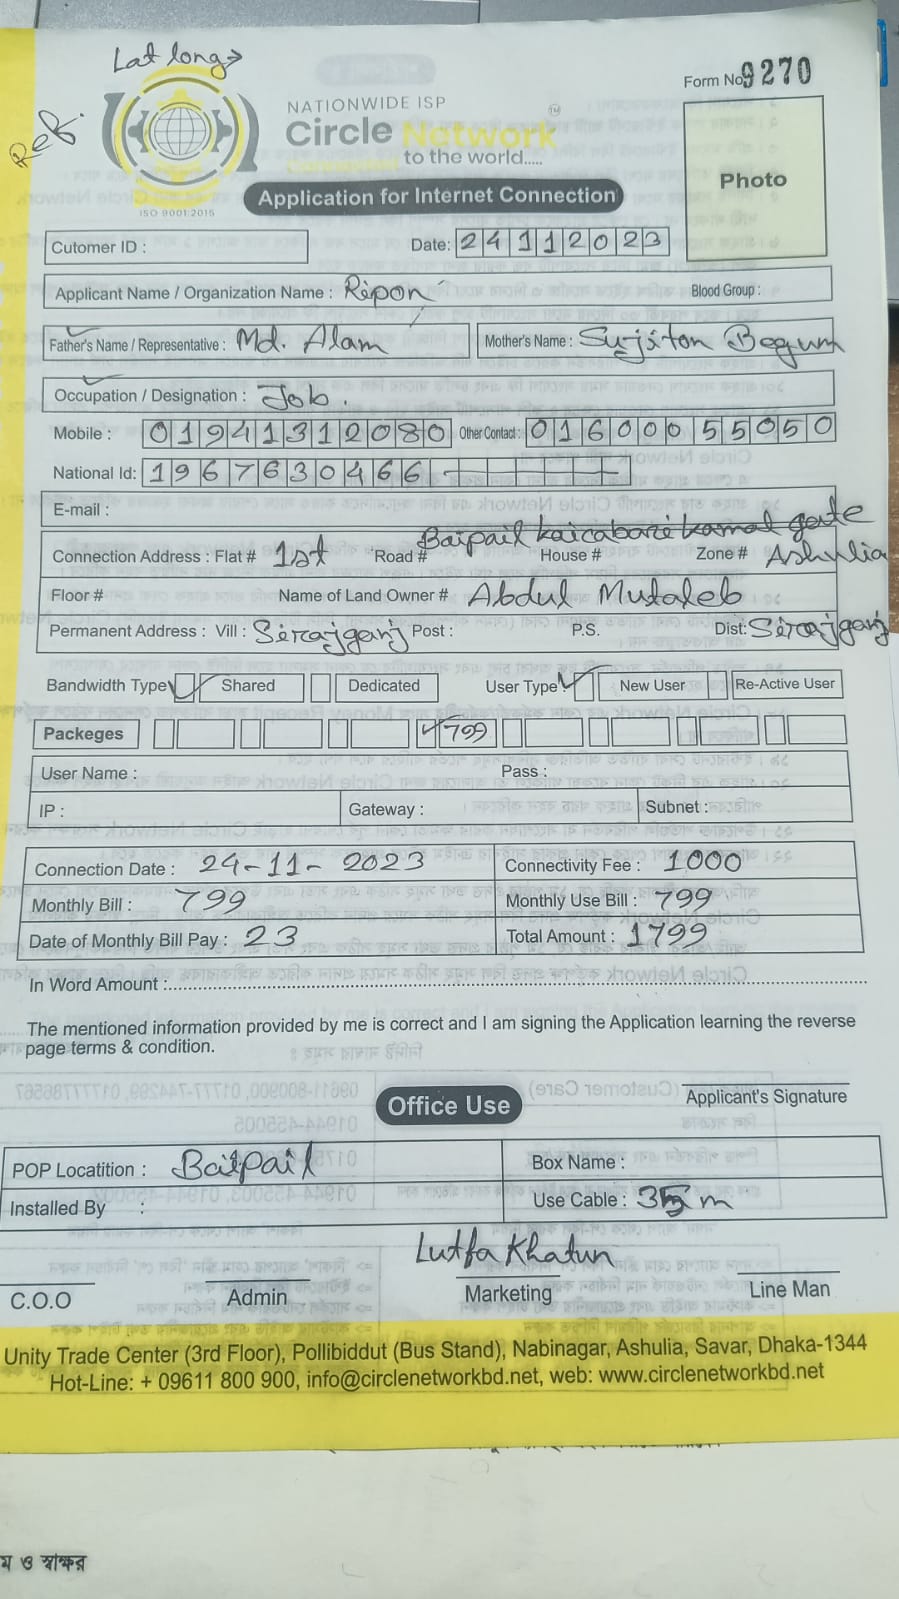 Lat long→
Ref.
Form No. 9270
NATIONWIDE ISP
Circle Network TM
to the world.....
ISO 9001:2015
Application for Internet Connection
Photo
Cutomer ID :
Date: 24112023
Applicant Name / Organization Name : Ripon
Blood Group :
Father's Name / Representative : Md. Alam
Mother's Name : Sujiton Begum
Occupation / Designation : Job.
Mobile : 01941312080 Other Contact : 01600055050
National Id: 1967630466
E-mail :
Baipail kaicabari kamal gate
Connection Address : Flat # 1st Road # House # Zone # Ashulia
Floor # Name of Land Owner # Abdul Mutaleb
Permanent Address : Vill : Sirajganj Post : P.S. Dist: Sirajganj
Bandwidth Type Shared Dedicated User Type New User Re-Active User
Packeges 799
User Name : Pass :
IP : Gateway : Subnet :
Connection Date : 24-11-2023 Connectivity Fee : 1000
Monthly Bill : 799 Monthly Use Bill : 799
Date of Monthly Bill Pay : 23 Total Amount : 1799
In Word Amount :
The mentioned information provided by me is correct and I am signing the Application learning the reverse
page terms & condition.
Applicant's Signature
Office Use
POP Locatition : Baipail Box Name :
Installed By : Use Cable : 35 m
Lutfa Khatun
C.O.O Admin Marketing Line Man
Unity Trade Center (3rd Floor), Pollibiddut (Bus Stand), Nabinagar, Ashulia, Savar, Dhaka-1344
Hot-Line: + 09611 800 900, info@circlenetworkbd.net, web: www.circlenetworkbd.net
ম ও স্বাক্ষর